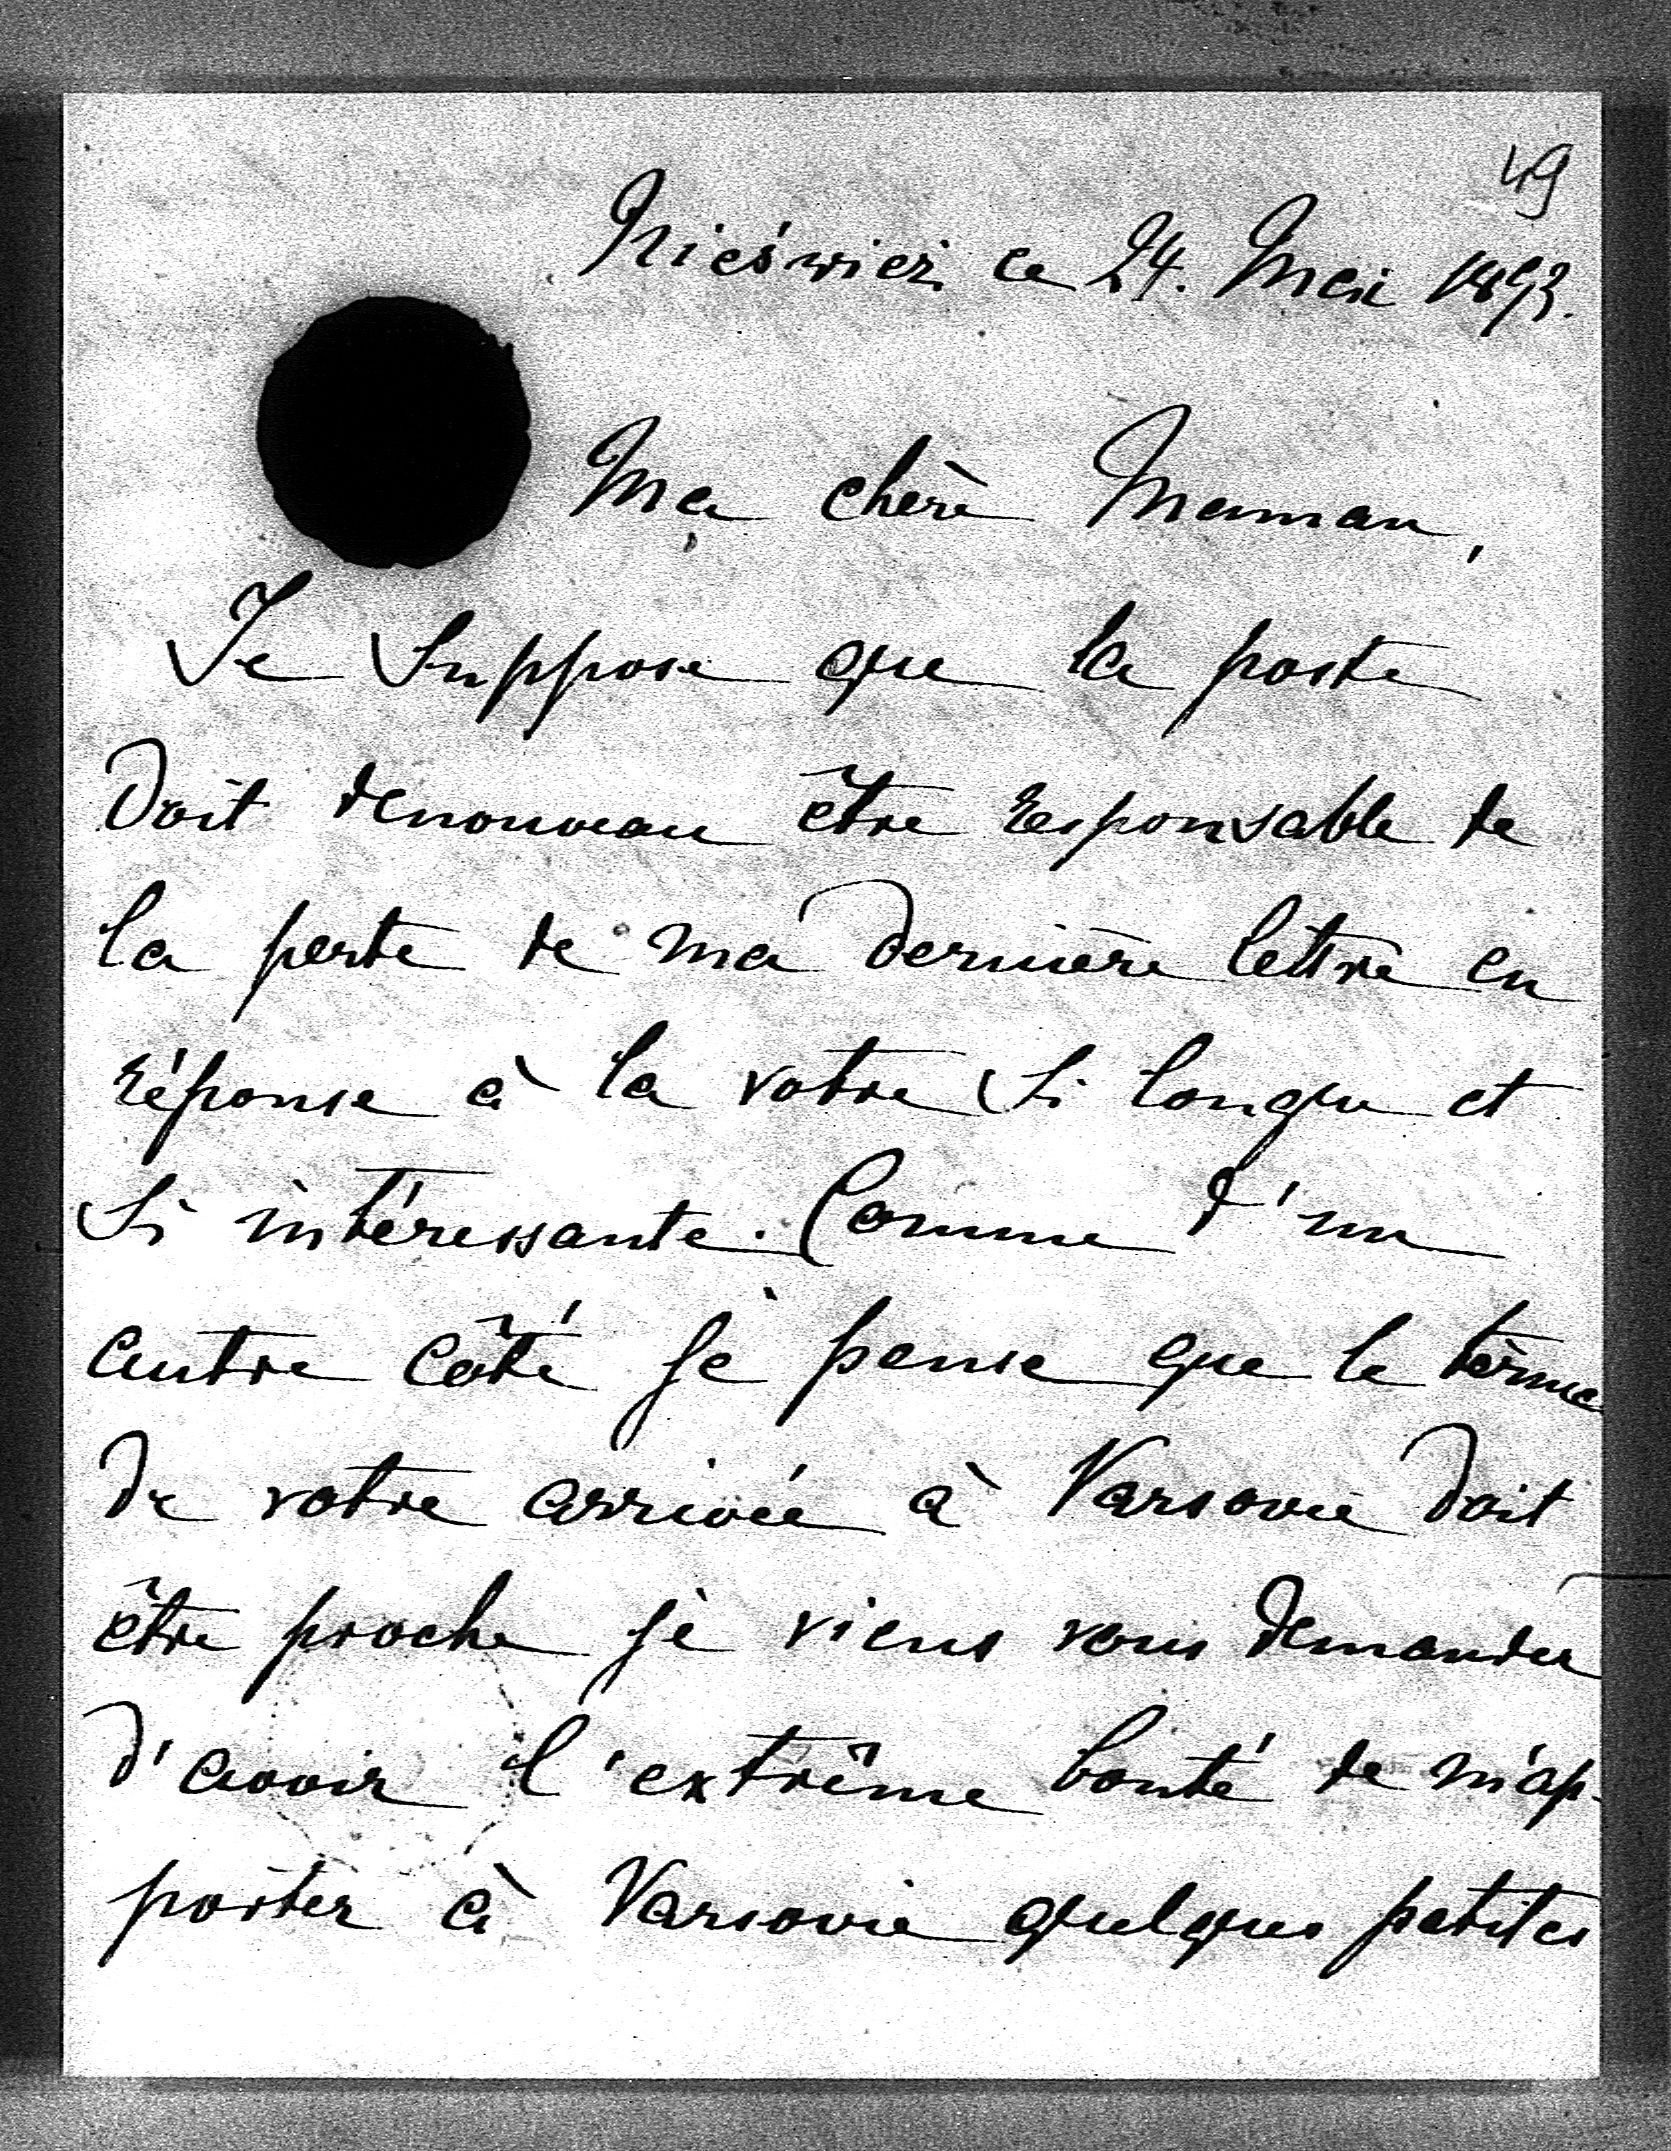 49
Nieśwież ce 24. Mai 1893.
Ma chère Maman,
Je suppose que la poste
doit denouveau être responsable de
la perte de ma dernière lettre en
réponse à la votre si longue et
si intéressante. Comme d'un
autre côté je pense que le terme
de votre arrivée à Varsovie doit
être proche je viens vous demander
d'avoir l'extrême bonté de m'ap-
porter à Varsovie quelques petites